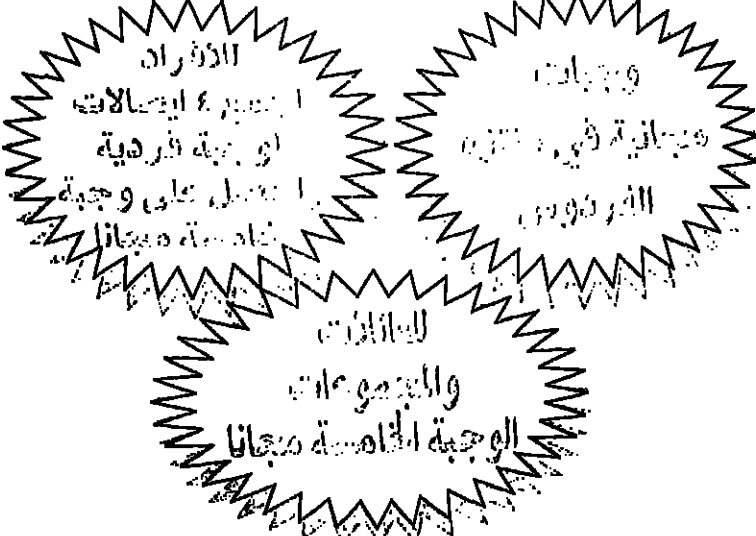 وجبات
مجانية في منتزه
الفردوس
للأفراد
احضر ٤ ايصالات
لوجبة فرعية
واحصل على وجبة
خامسة مجانا
للعائلات
والمجموعات
الوجبة الخامسة مجانا